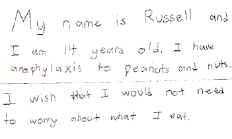 My name is Russell and
I am 14 years old. I have
anaphylaxis to peanuts and nuts.
I wish that I would not need
to worry about what I eat.